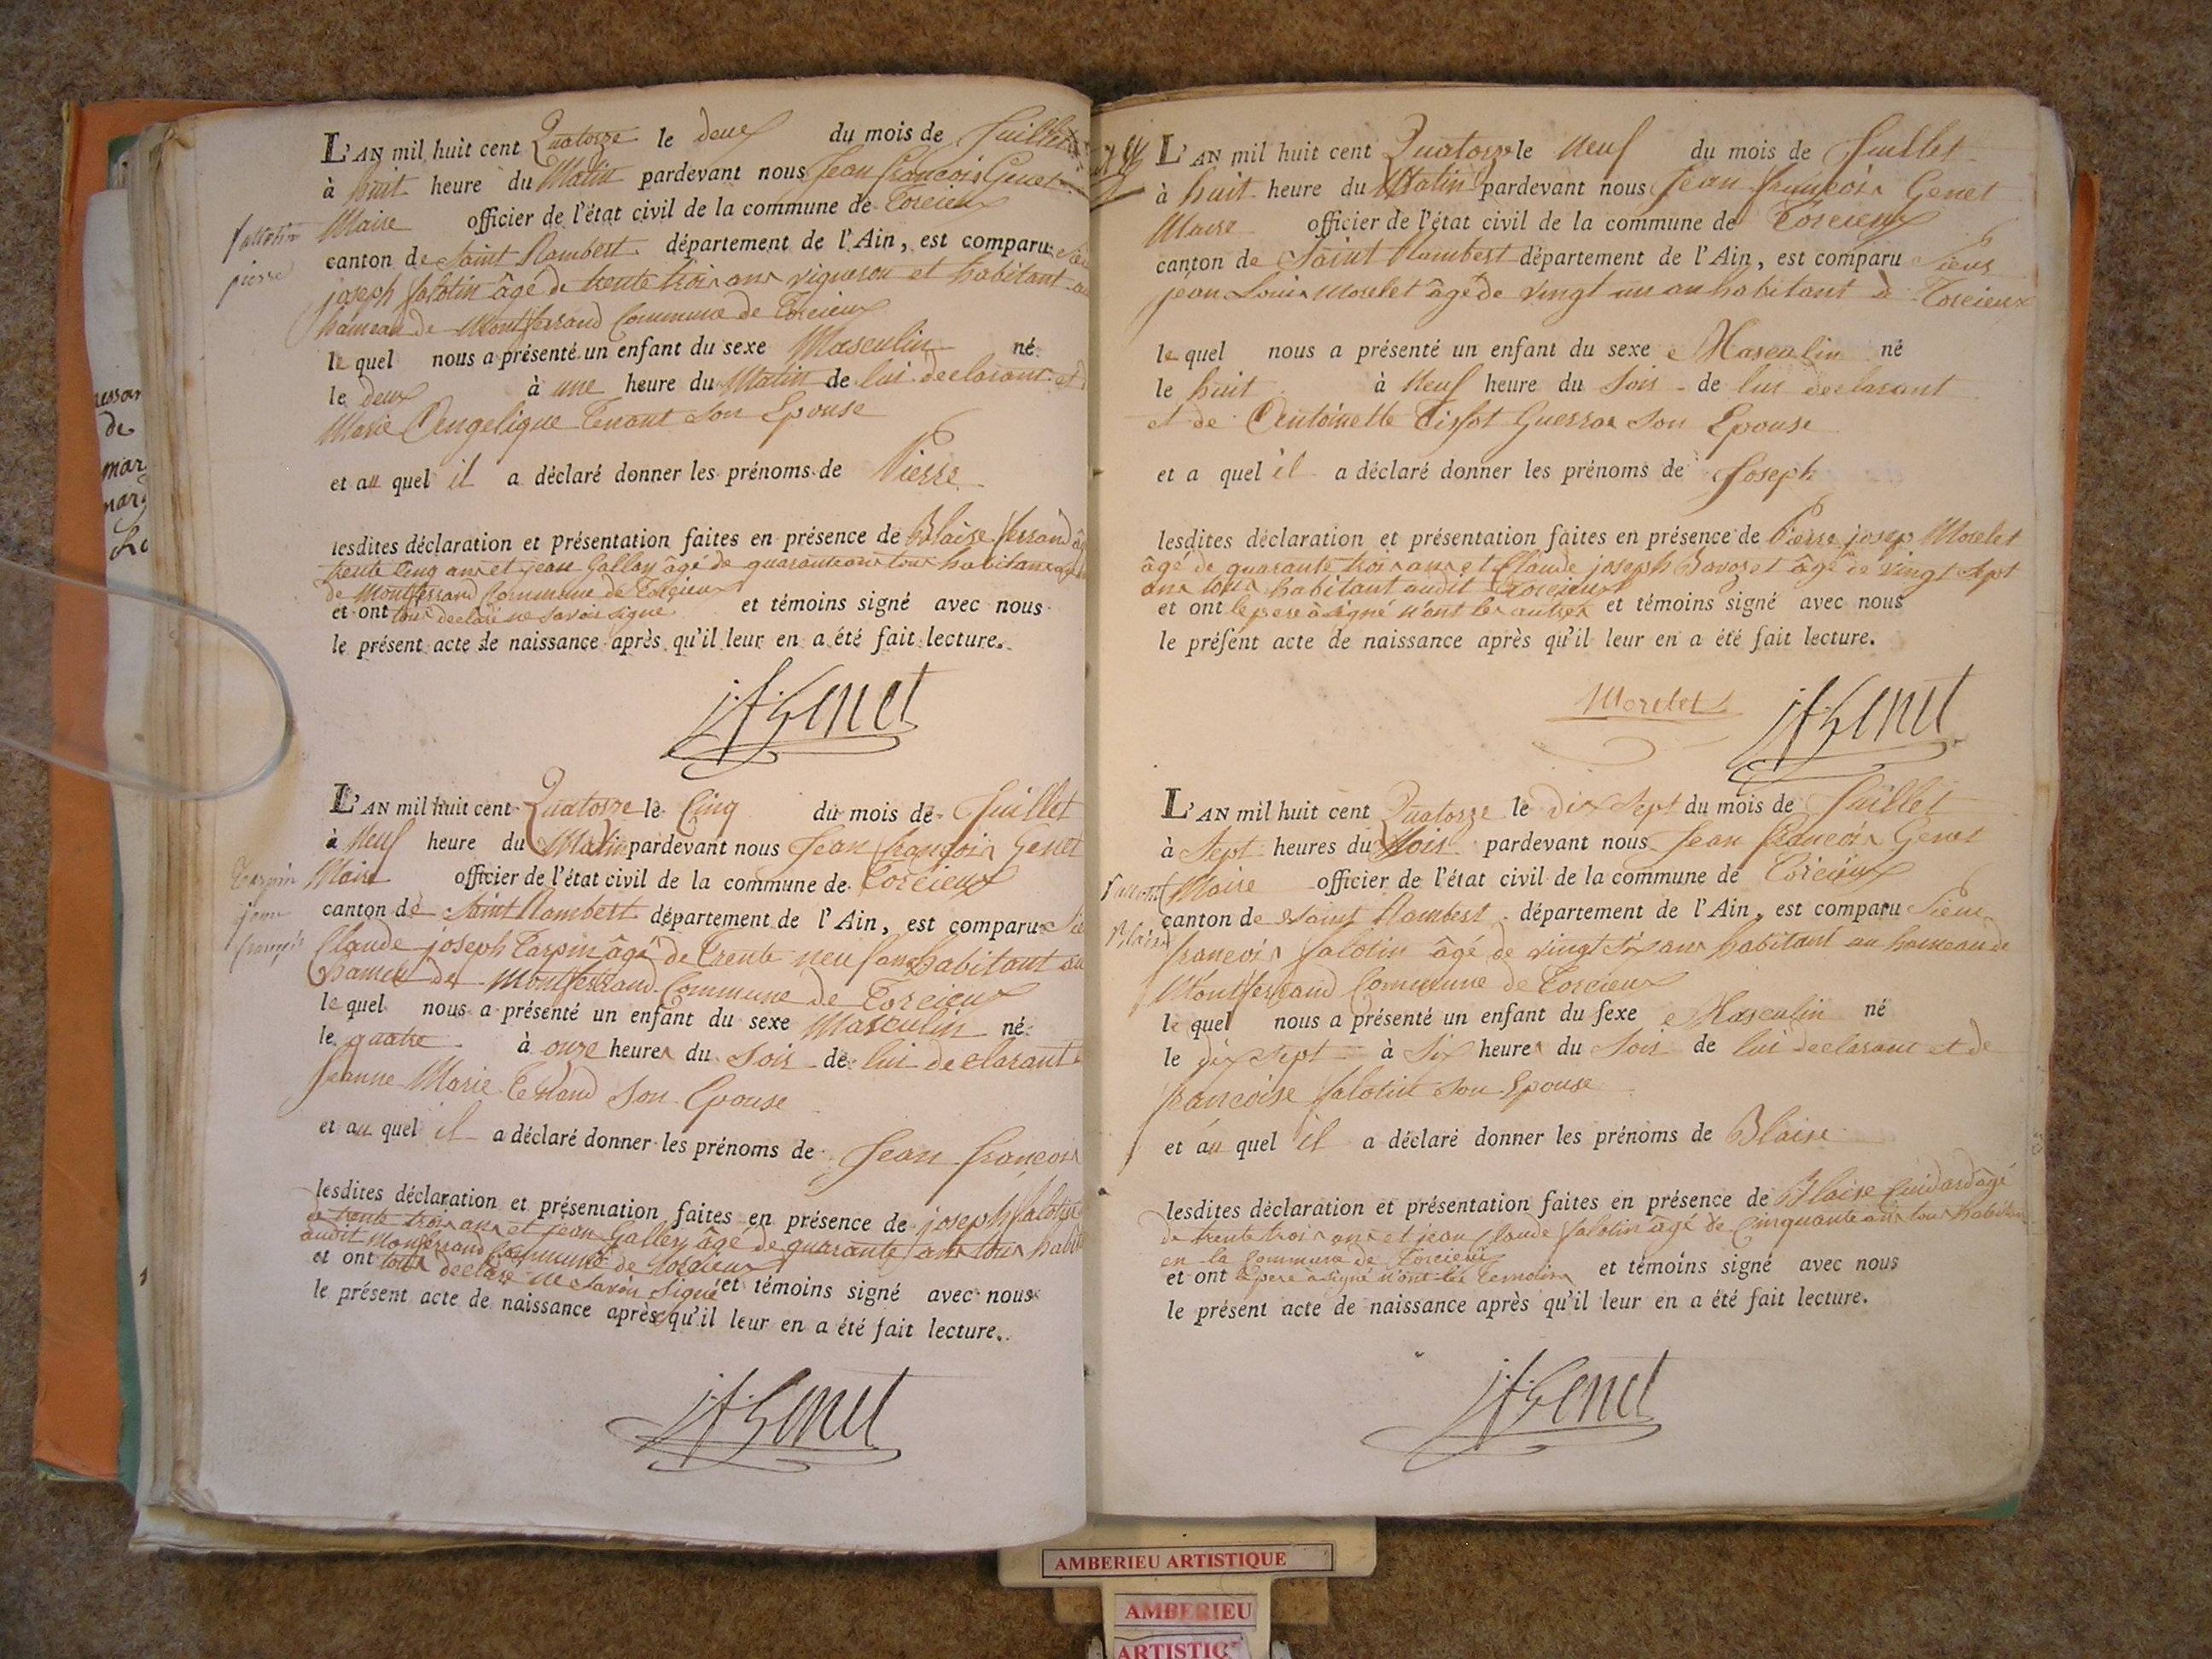 L'AN mil huit cent Quatorze le deux du mois de Juillet
à huit heure du Matin pardevant nous Jean françois Genet
Maire officier de l'état civil de la commune de Torcieux
canton de Saint Rambert département de l'Ain, est comparu
joseph falotin âgé de trente trois ans vigneron et habitant au
hameau de Montferrand Commune de Torcieux
le quel nous a présenté un enfant du sexe Masculin né
le deux à une heure du Matin de lui declarant et
Marie Angelique Tenant son Epouse
et au quel il a déclaré donner les prénoms de Pierre
lesdites déclaration et présentation faites en présence de Blaise ferrand
trente Cinq ans et jean Galley âgé de quarante ans tous habitans
de Montferrand Commune de Torcieux
et ont tous declaré ne savoir signé et témoins signé avec nous
le présent acte de naissance après qu'il leur en a été fait lecture.
jfGenet
fallotin
pierre
L'AN mil huit cent Quatorze le Cinq du mois de Juillet
à Neuf heure du Matin pardevant nous Jean françois Genet
Maire officier de l'état civil de la commune de Torcieux
canton de Saint Rambert département de l'Ain, est comparu
Claude joseph Tarpin âgé de Trente neuf ans habitant au
hameu de Montferrand Commune de Torcieux
le quel nous a présenté un enfant du sexe Masculin né
le quatre à onze heures du Soir de lui declarant
Jeanne Marie Tenand son Epouse
et au quel il a déclaré donner les prénoms de Jean françois
lesdites déclaration et présentation faites en présence de joseph falotin
de trente trois ans et jean Galley âgé de quarante ans tous
audit Monferrand Commune de Torcieux
et ont tous declaré ne Savoir Signé et témoins signé avec nous
le présent acte de naissance après qu'il leur en a été fait lecture.
jfGenet
Tarpin
jean
françois
L'AN mil huit cent Quatorze le Neuf du mois de Juillet
à huit heure du Matin pardevant nous Jean françois Genet
Maire officier de l'état civil de la commune de Torcieux
canton de Saint Rambert département de l'Ain, est comparu Sieur
jean Louis Morelet âgé de vingt un an habitant à Torcieux
le quel nous a présenté un enfant du sexe Masculin né
le huit à Neuf heure du Soir de lui declarant
et de Antoinette Tissot Guerraz son Epouse
et a quel il a déclaré donner les prénoms de Joseph
lesdites déclaration et présentation faites en présence de Pierre josep Morelet
âgé de quarante trois ans et Claude joseph Bavozet âgé de vingt Sept
ans tous habitant audit Torcieux
et ont le pere à signé n'ont les autres et témoins signé avec nous
le présent acte de naissance après qu'il leur en a été fait lecture.
Morelet jfGenet
L'AN mil huit cent Quatorze le Dix Sept du mois de Juillet
à Sept heures du Soir pardevant nous Jean françois Genet
Maire officier de l'état civil de la commune de Torcieux
canton de Saint Rambert département de l'Ain, est comparu Sieur
françois falotin âgé de vingt Six ans habitant au hameau de
Montferrand Commune de Torcieux
le quel nous a présenté un enfant du sexe Masculin né
le dix Sept à Six heures du Soir de lui declarant et de
françoise falotin son Epouse
et au quel il a déclaré donner les prénoms de Blaise
lesdites déclaration et présentation faites en présence de Blaise âgé
de trente trois ans et jean Claude falotin âgé de Cinquante ans tous habitans
en la Commune de Torcieux
et ont le pere à signé n'ont les Temoins et témoins signé avec nous
le présent acte de naissance après qu'il leur en a été fait lecture.
jfGenet
Blaise
AMBERIEU ARTISTIQUE
AMBERIEU
ARTISTIQ